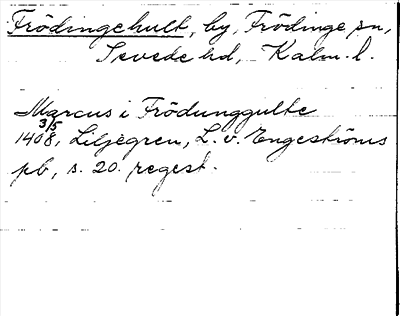 Frödingehult, by, Frödinge sn,
Sevede hd, Kalm. l.
Marcus i Frödunggulte
1408 3/5, Liljegren, L. v. Engeströms
pb, s. 20. regest.